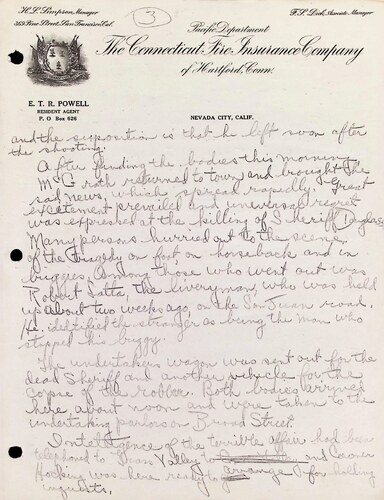 H. L. Simpson, Manager
369 Pine Street, San Francisco, Cal.
3
F. S. Dick, Associate Manager
Pacific Department
The Connecticut Fire Insurance Company
of Hartford, Conn.
E. T. R. POWELL
RESIDENT AGENT
P. O Box 626
NEVADA CITY, CALIF.
and the suposition is that he left soon after
the shooting.
After finding the bodies this morning
McGrath returned to town and brought the
sad news, which spread rapidly. Great
excitement prevailed and universal regret
was expressed at the killing of Sheriff Douglass
Many persons hurried out to the scene
of the tragedy on foot on horseback and in
buggies. Among those who went out was
Robert Latta, the liveryman, who was held
up about two weeks ago, on the San Juan road.
He identified the stranger as being the man who
stopped his buggy.
The undertakers wagon was sent out for the
dead Sheriff and another vehicle for the
corpse of the robber. Both bodies arrived
here about noon and were taken to the
undertaking parlors on Broad Street.
Intelligence of the terrible affair had been
telephoned to Grass Valley to and Coroner
Hocking was here ready to arrange for holding
inquests.